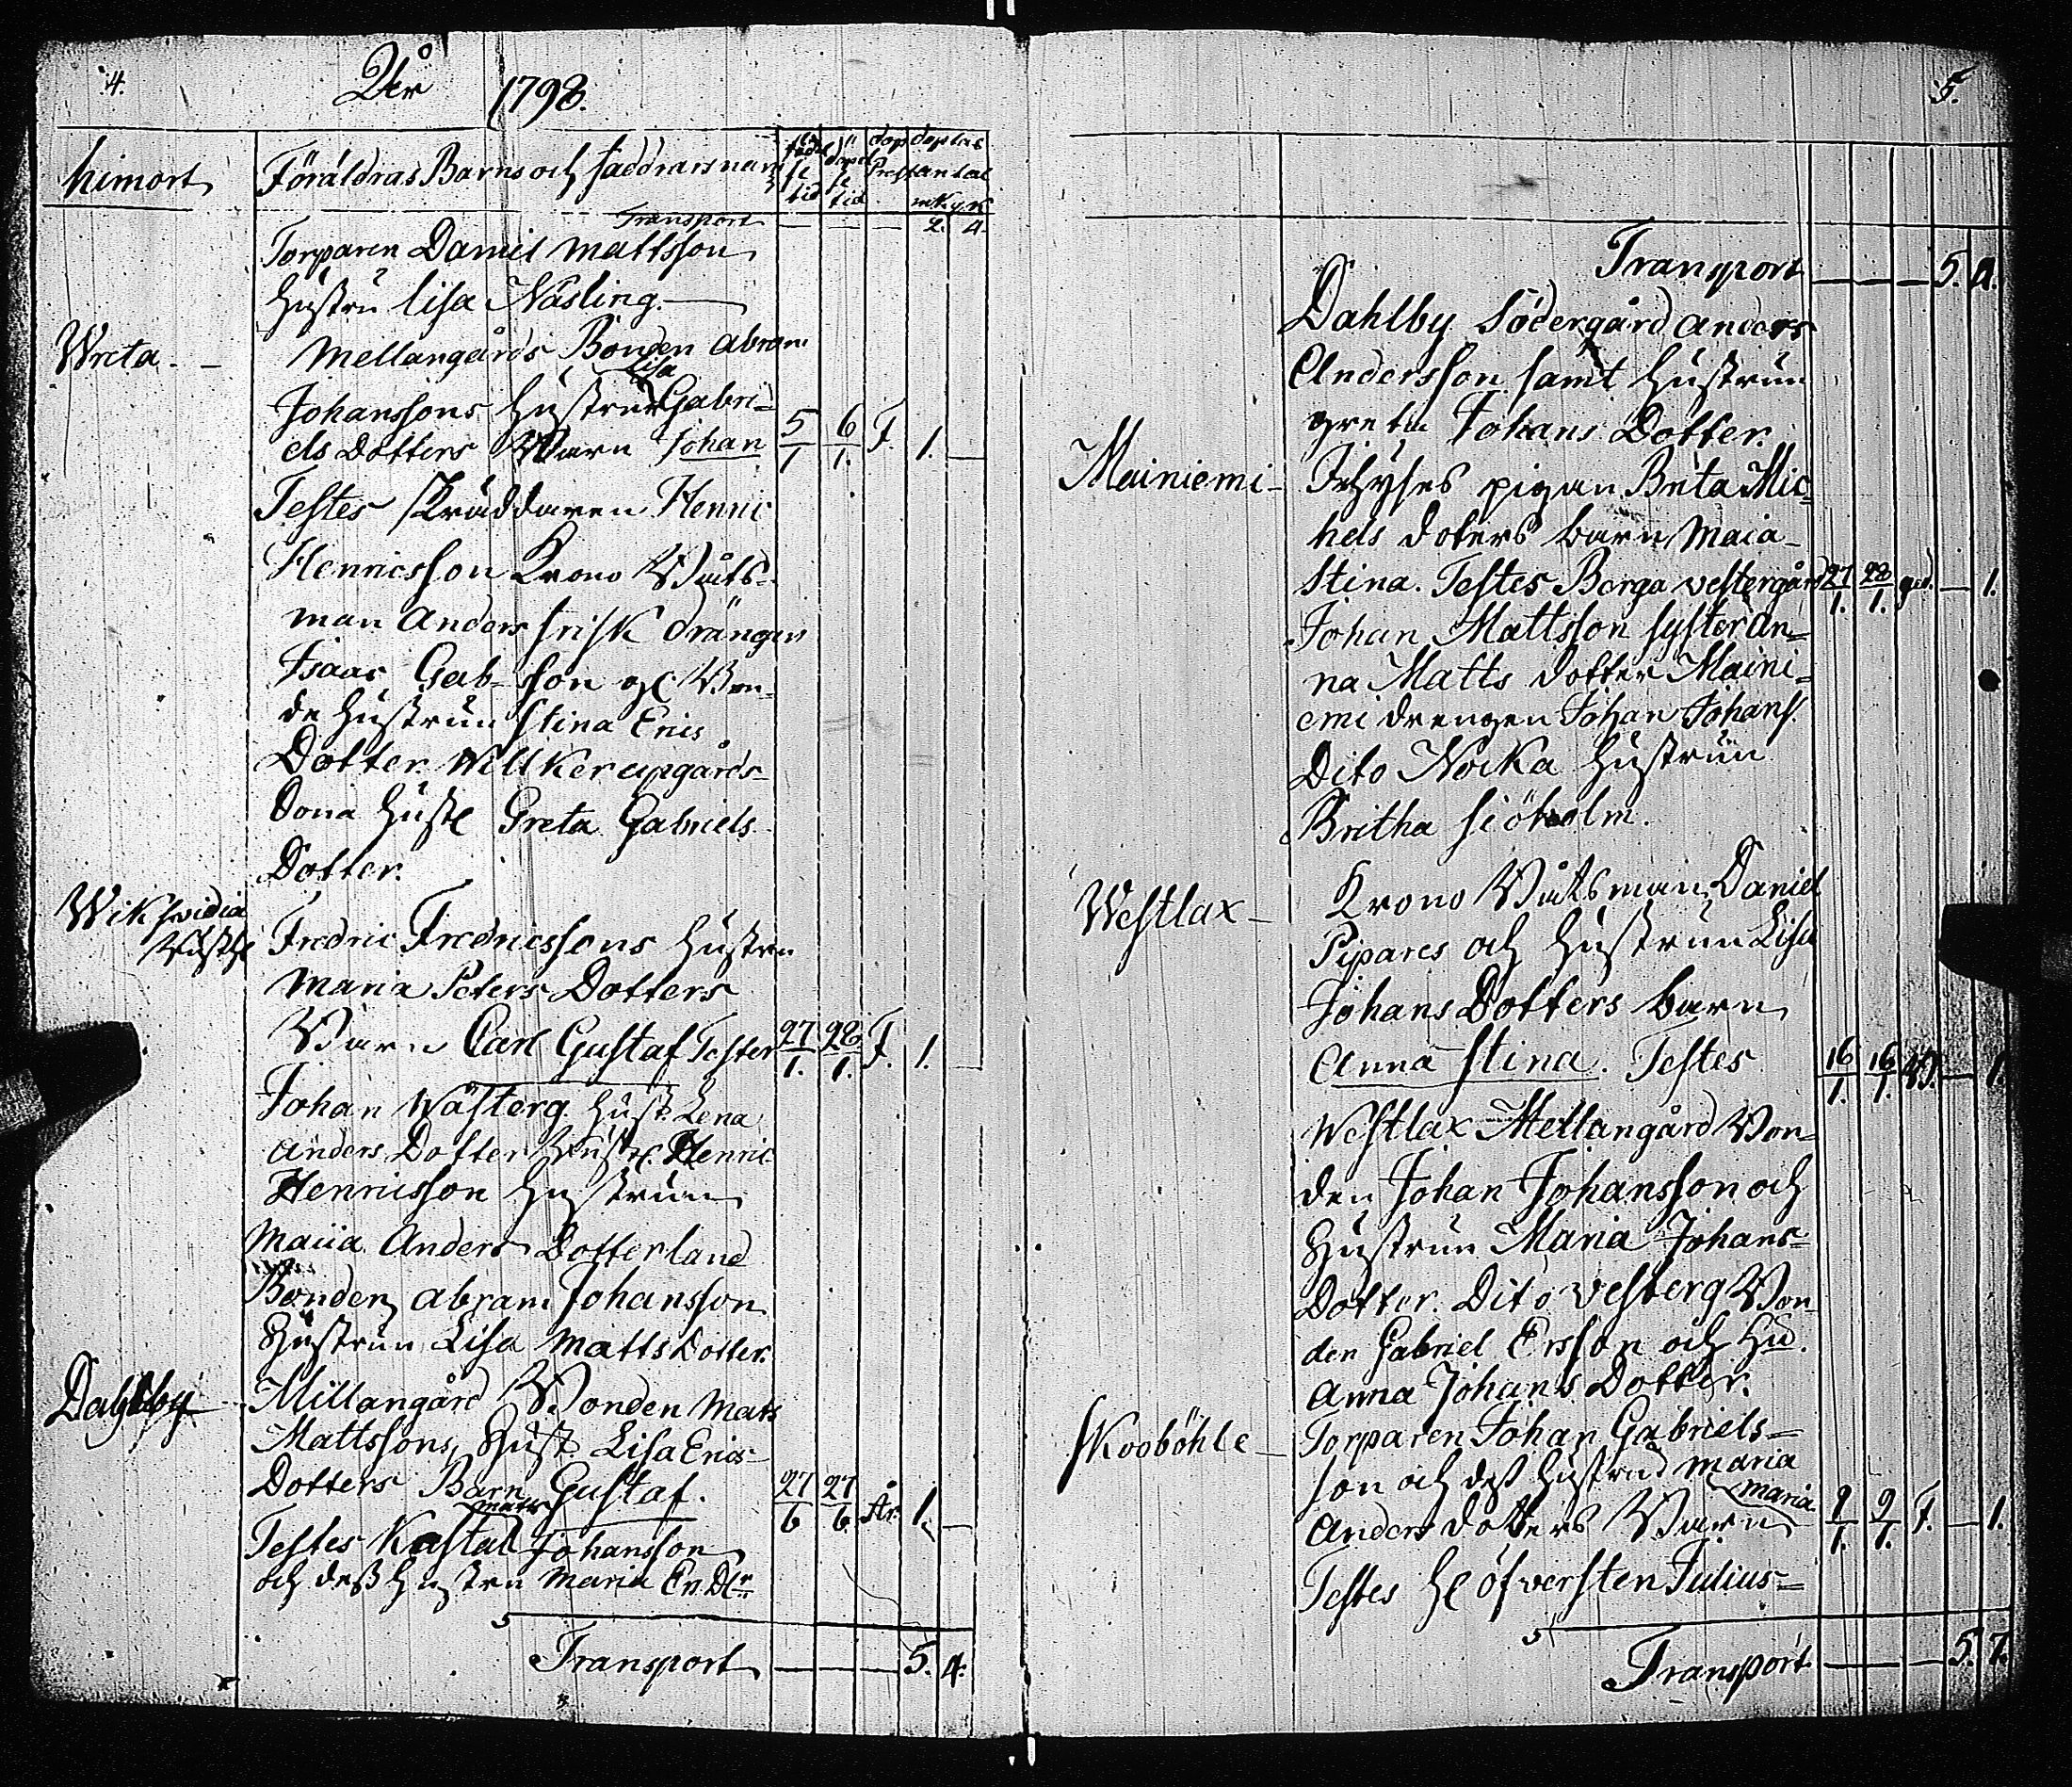 4.
År 1798.
himort
Föräldras Barns och faddrars nam
födel se tid
döpel se tid
dop Prest
doptas antal
mk. q.k
Transport — — — 2. 4.
Torparen Daniel Mattsson
hustru Lisa Näsling.
Wreta. — Mellangårds Bonden Abram
Lisa
Johanssons hustru Gabri-
els Dotters Barn Johan 5/1 6/1. F. 1. —
Testes Skräddaren Henric
Henricsson Krono Båts-
man Anders Frisk drängen
Isaac Gab-sson och Bon-
de hustrun Stina Erics
Dotter. Willker upgårds-
Dona hust Greta Gabriels
Dotter.
Wiksvidia
Fredric Fredricssons hustru
Maria Peters Dotters
Barn Carl Gustaf Testes 27/1. 28/1. F. 1. —
Johan Wästerg. hust. Lena
Anders Dotter Henric
Henricsson hustrun
Maiia Anders Dotter land
Bonden Abram Johansson
Hustrun Lisa Matts Dotter.
Dahlby Millangård Bonden Mats
Mattssons Hust. Lisa Erics-
Dotters Barn Gustaf. 27/6 27/6. Str. 1. —
Testes Kastal Johansson
och dess hustru Maria En.Dtr
Transport — — — 5. 4.
5.
Transport — — — 5. 4.
Dahlby Södergård Anders
Andersson samt hustrun
Greta Johans Dotter.
Mainiemi — Inhyses pigan Brita Mic-
hels doters barn Maia-
Stina. Testes Borga Vestergård 27/1. 28/1. — 1.
Johan Mattsson syster An-
na Matts dotter Maini-
emi drengen Johan Johans.
Dito Nocka hustrun
Britha Siöholm.
Westlax — Krono Båtsman Daniel
Pipares och hustrun Lisa
Johans Dotters barn
Anna Stina. Testes 16/1. 16/1. W. — 1.
Westlax Mellangård Bon-
den Johan Johansson och
Hustrun Maria Johans-
Dotter. Dito Vesterg Bon
den Gabriel Ersson och Hu.
Anna Johans Dotter.
Skoböhle — Torparen Johan Gabriels-
son och dess hustru Maria
Maria
Anders dotters Barn 9/1. 9/1. F. — 1.
Testes H. öfversten Julius-
Transport — — — 5. 7.